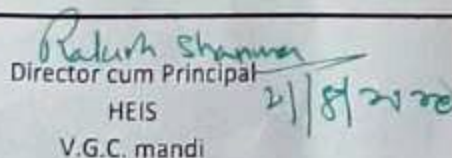 Rakesh Sharma
Director cum Principal
HEIS
V.G.C. mandi